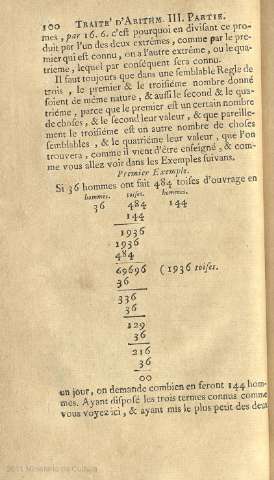 100 TRAITÉ D'ARITHM. III. PARTIE.
mes, par 16. 6. c'est pourquoi en divisant ce pro-
duit par l'un des deux extrémes, comme par le pre-
mier qui est connu, on a l'autre extrême, ou le qua-
trieme, lequel par conséquent sera connu.
Il faut toujours que dans une semblable Regle de
trois, le premier & le troisiéme nombre donné
soient de même nature, & aussi le second & le qua-
triéme, parce que le premier est un certain nombre
de choses, & le second leur valeur, & que pareille-
ment le troisiéme est un autre nombre de choses
semblables, & le quatriéme leur valeur, que l'on
trouvera, comme il vient d'être enseigné, & com-
me vous allez voir dans les Exemples suivans.
Premier Exemple.
Si 36 hommes ont fait 484 toises d'ouvrage en
hommes. toises. hommes.
36 484 144
144
1936
1936
484
69696 (1936 toises.
36
336
36
129
36
216
36
00
un jour, on demande combien en feront 144 hom-
mes. Ayant disposé les trois termes connus comme
vous voyez ici, & ayant mis le plus petit des deux
2011 Ministerio de Cultura